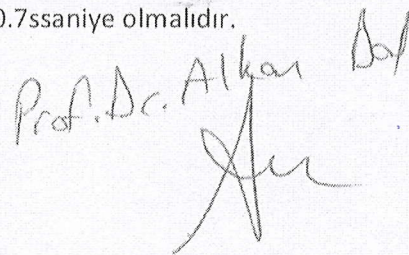 0.7ssaniye olmalıdır.
Prof. Dr. Alkan